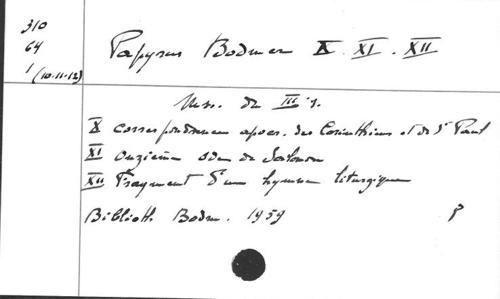 310
64
1 (10-11-12)
Papyrus Bodmer X. XI. XII
Mss. du IIIe s.
X Correspondance apocr. des Corinthiens et de St Paul
XI Onzième Ode de Salomon
XII Fragment d'un hymne liturgique
Biblioth. Bodm. 1959